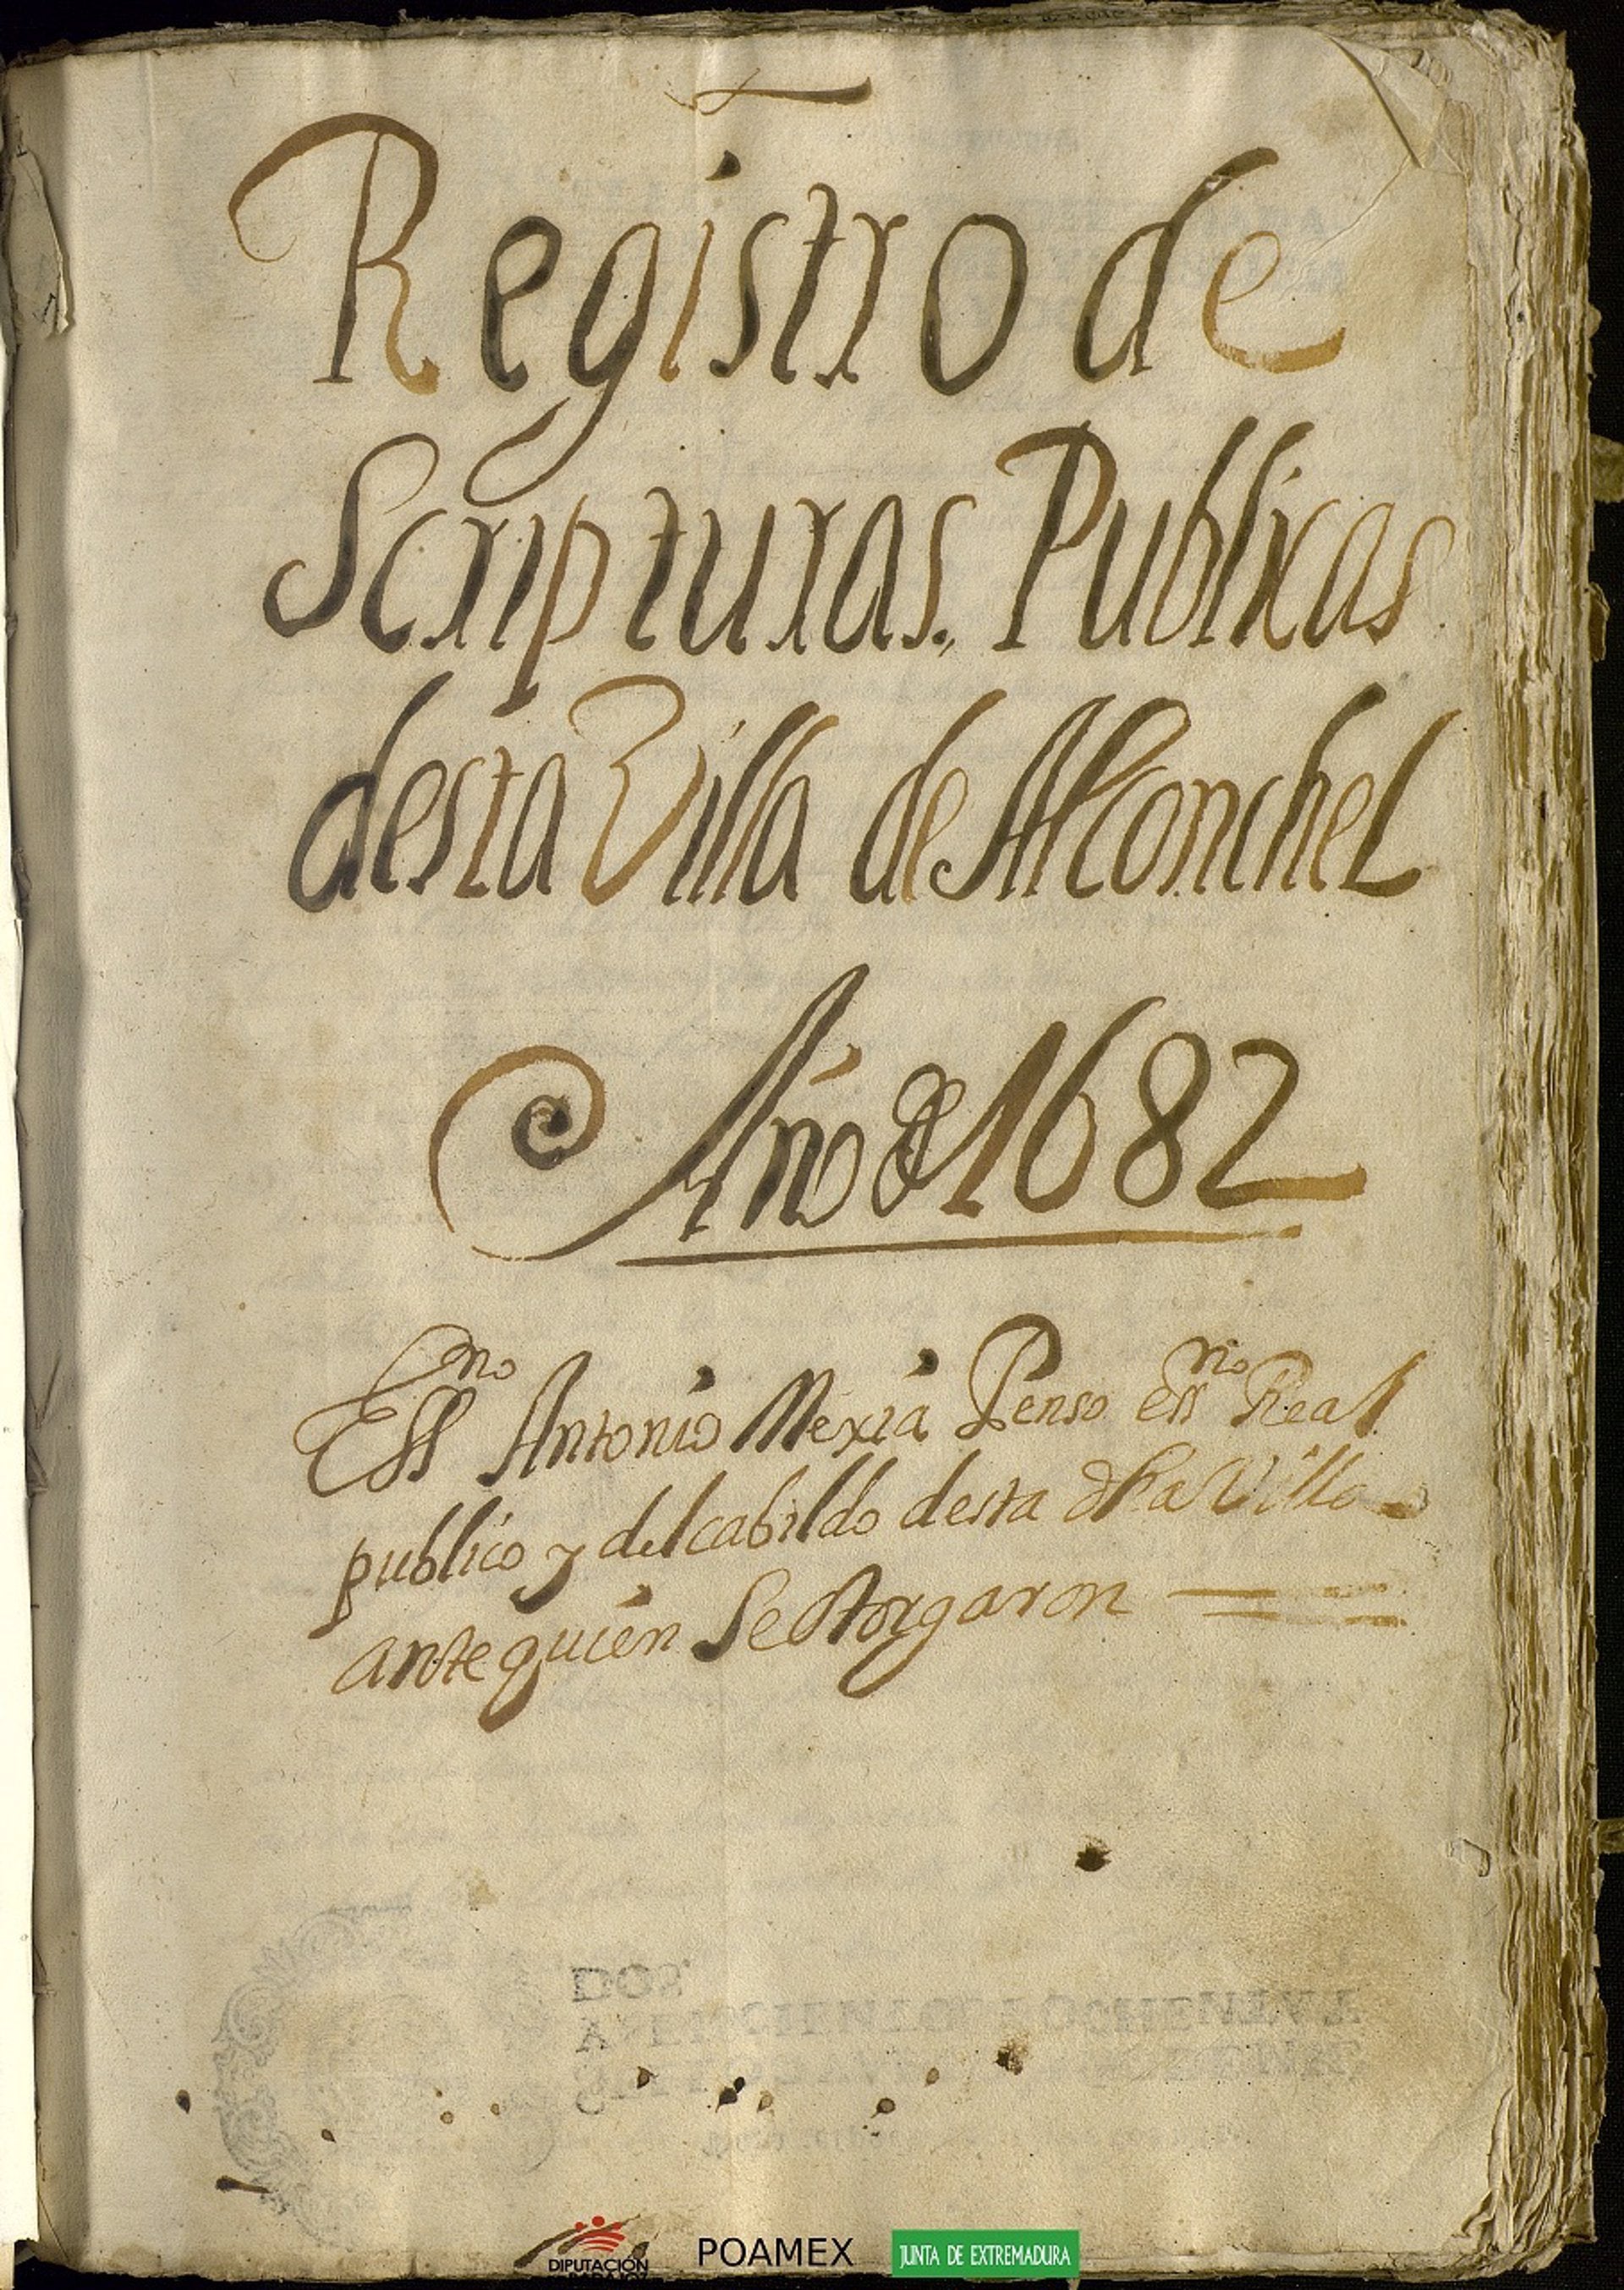 Registro de
Scripturas. Publicas
desta Villa de Alconchel
Año de 1682
Essno Antonio Mexia Penso essno Real
publico y del cabildo desta dha Villa
ante quien Se otorgaron
DOS.
DIPUTACIÓN
POAMEX
JUNTA DE EXTREMADURA